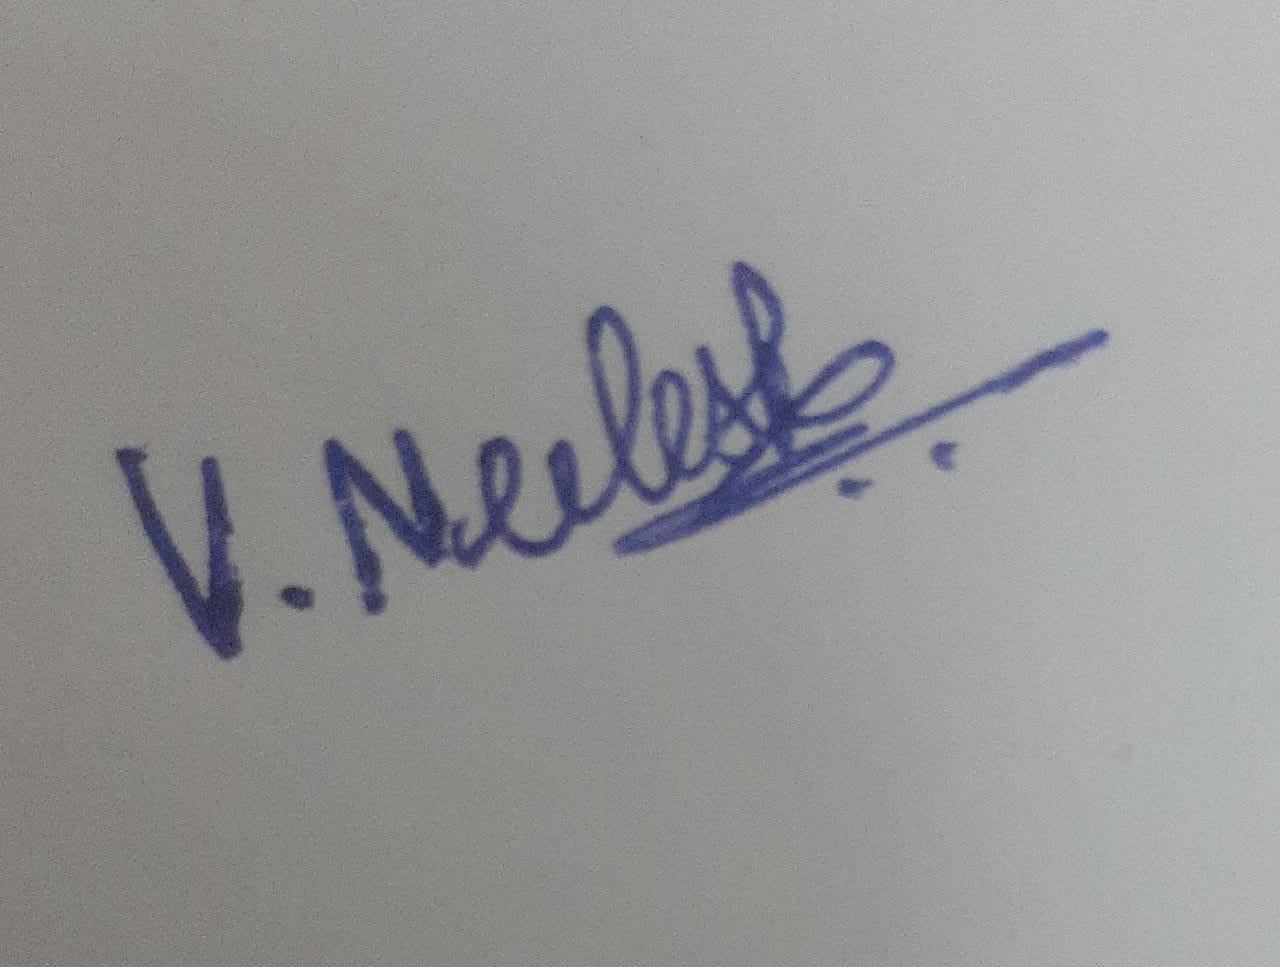 V. Neelesh